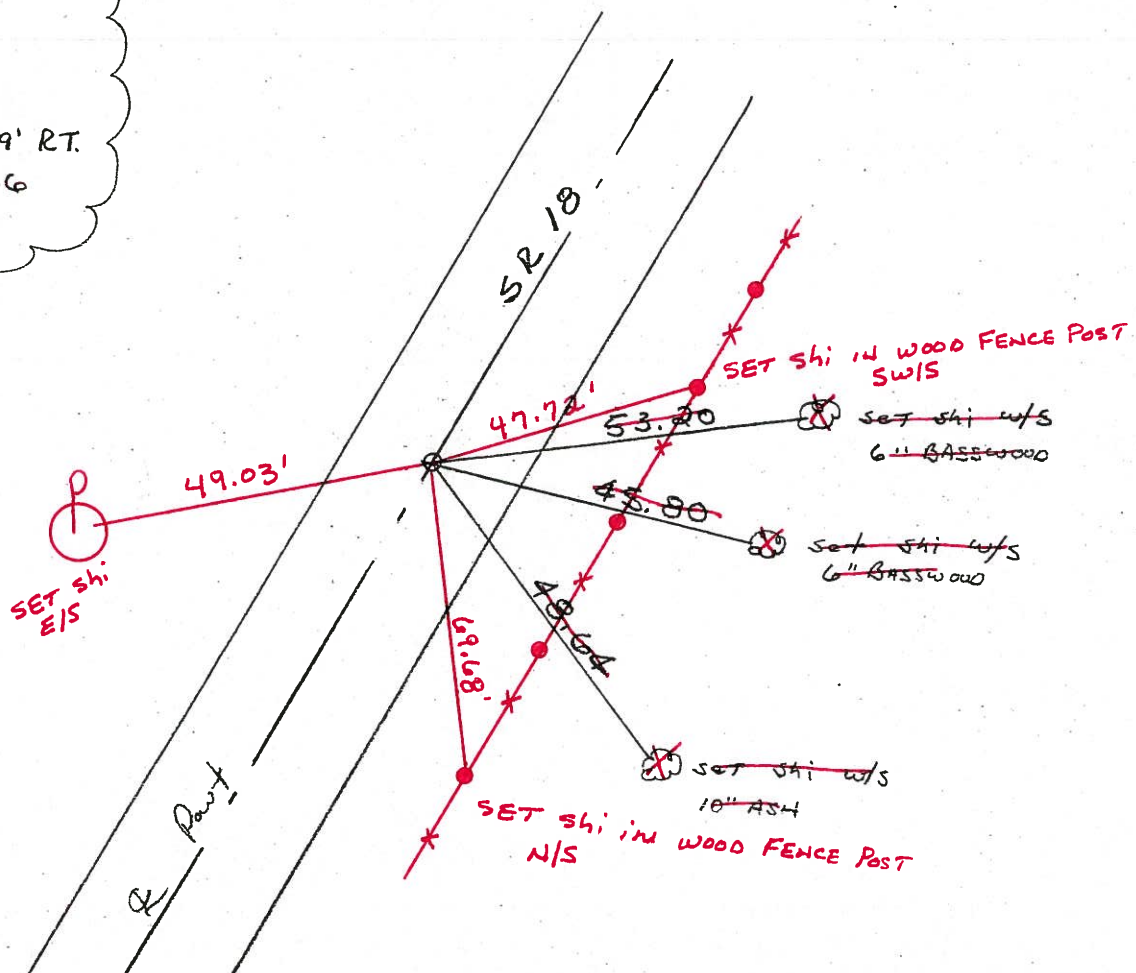 9' RT.
6
SR 18
SET Shi IN WOOD FENCE POST
SW/S
47.72'
53.20
set shi w/s
6" BASSWOOD
49.03'
P
SET Shi
E/S
45.80
set shi w/s
6" BASSWOOD
48.64
69.68'
set shi w/s
10" ASH
SET Shi in WOOD FENCE POST
N/S
Pavt